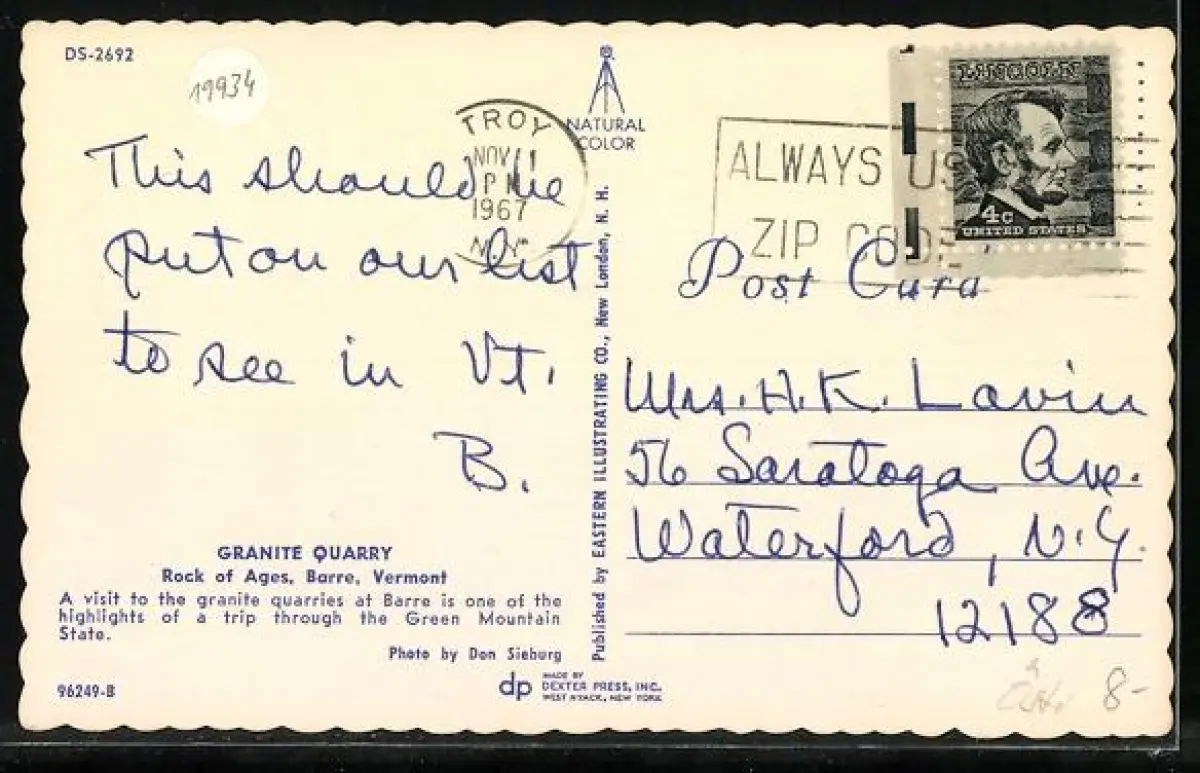 DS-2692
19934
TROY
NOV 11
PM
1967
N.Y.
®
NATURAL
COLOR
ALWAYS US
ZIP CODE
LINCOLN
4c
UNITED STATES
Post Card
This should be
put on our list
to see in Vt.
B.
Mrs. H.K. Lavin
56 Saratoga Ave.
Waterford, N.Y.
12188
GRANITE QUARRY
Rock of Ages, Barre, Vermont
A visit to the granite quarries at Barre is one of the
highlights of a trip through the Green Mountain
State.
Photo by Don Sieburg
96249-B
Published by EASTERN ILLUSTRATING CO., New London, N. H.
dp
MADE BY
DEXTER PRESS, INC.
WEST NYACK, NEW YORK
8-